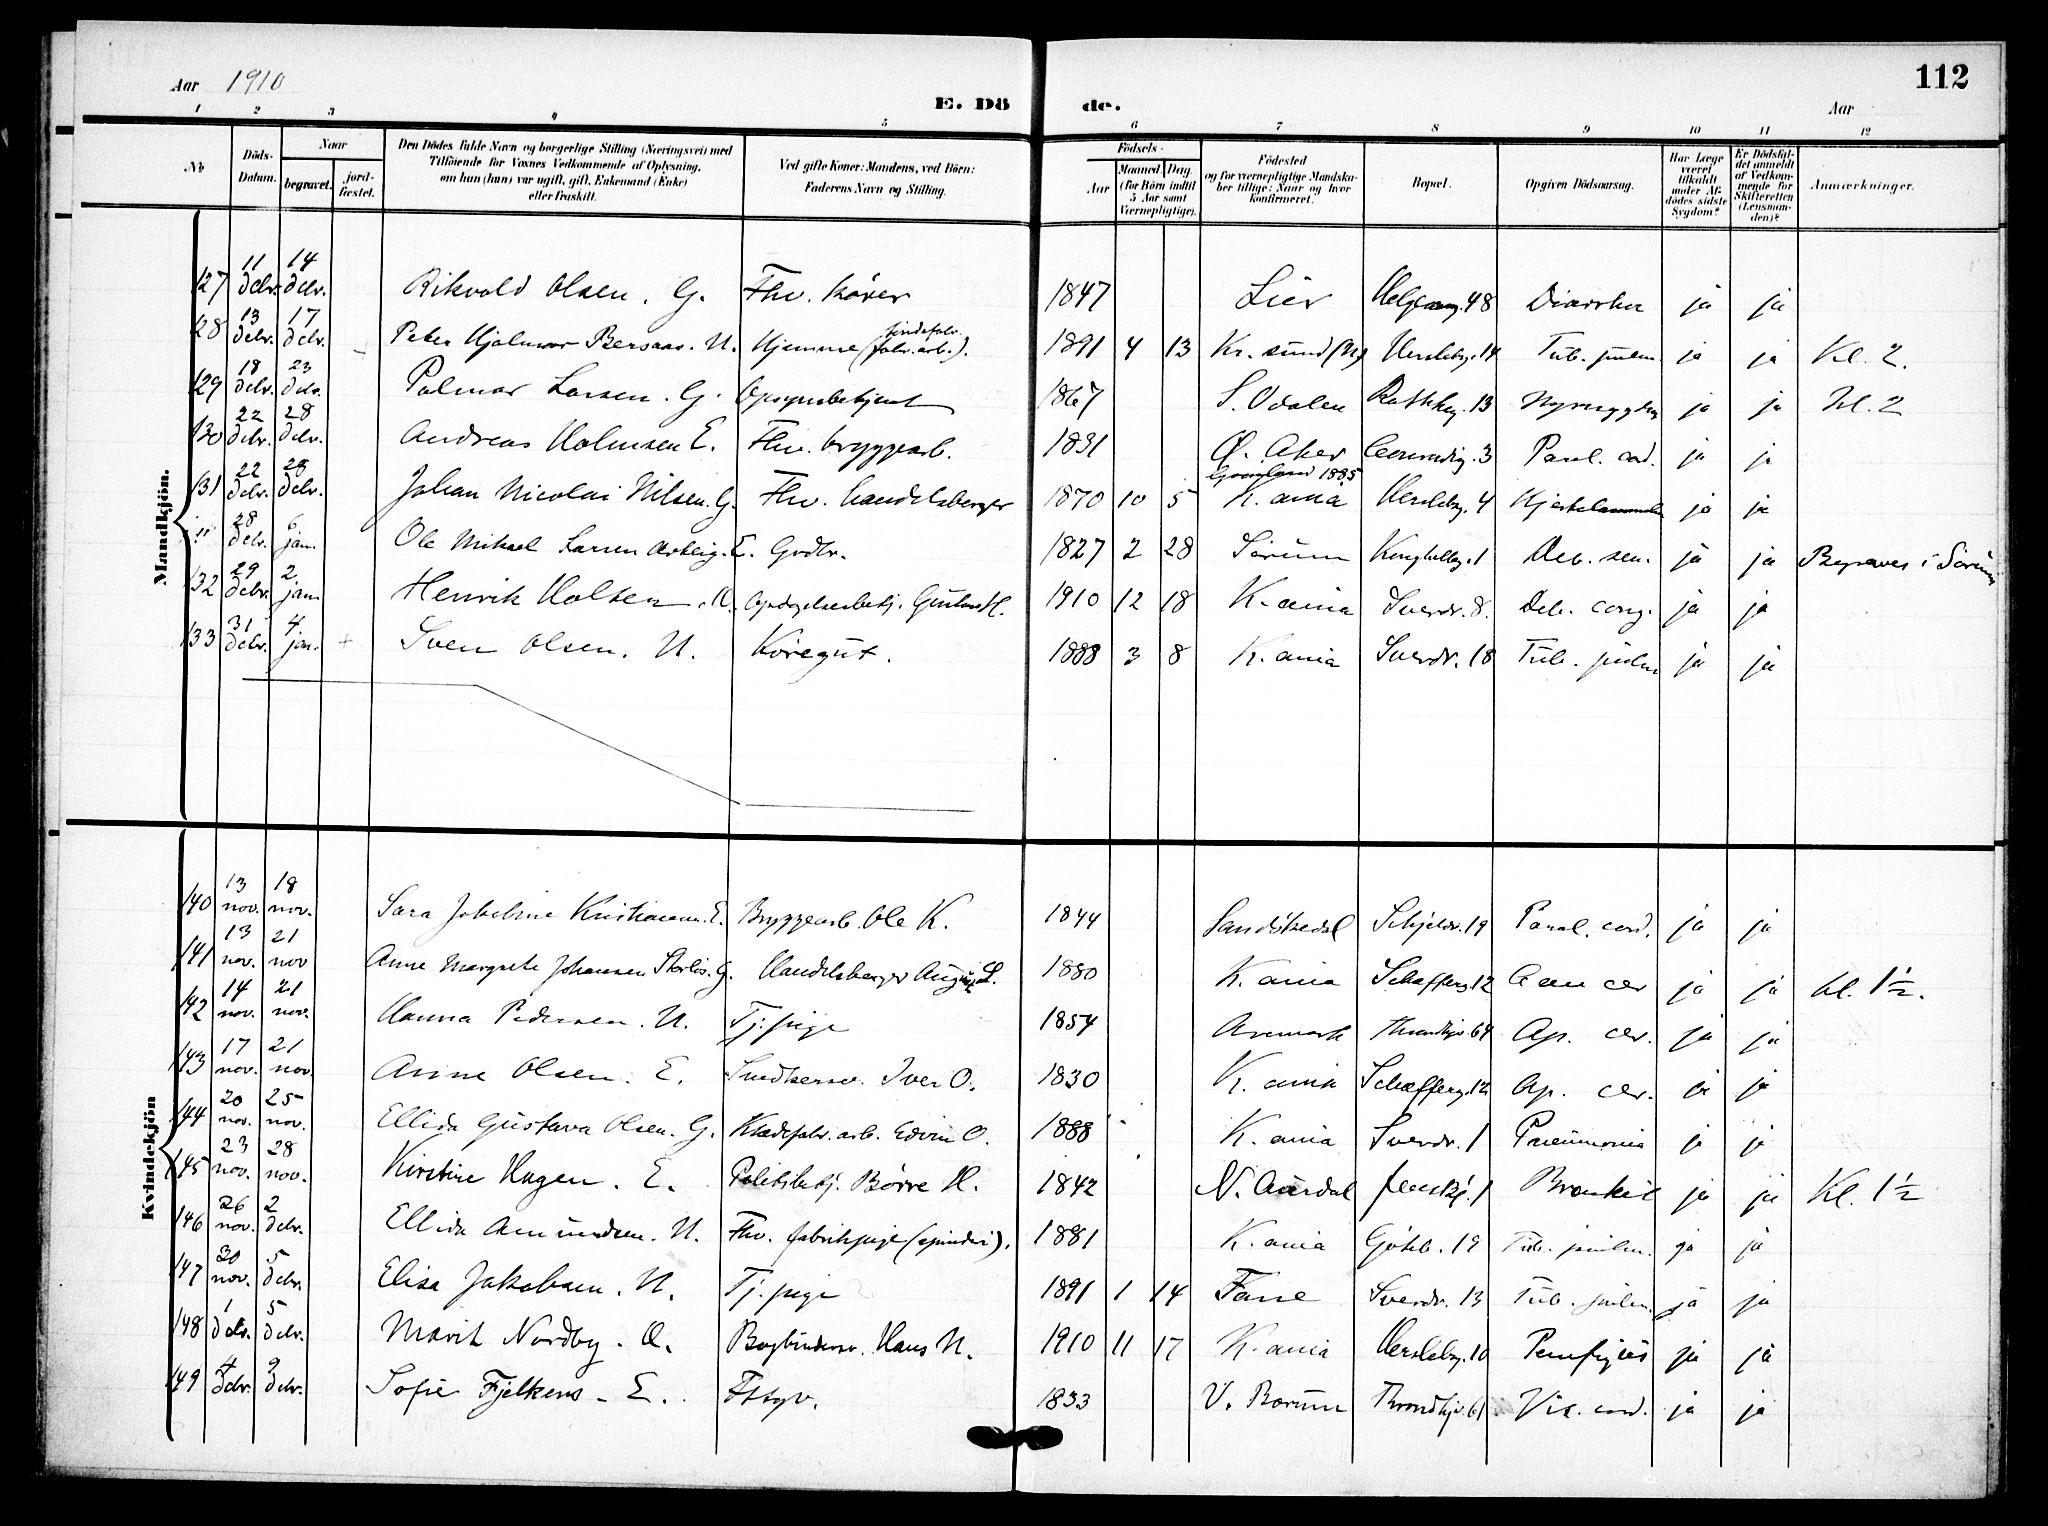 Aar 1910
E. Döde.
Aar
112
1 2 3 4 5 6 7 8 9 10 11 12
No
Döds-Datum.
Naar
begravet.
jordfæstet.
Den Dödes fulde Navn og borgerlige Stilling (Næringsvei) med Tilföiende for Voxnes Vedkommende af Oplysning, om han (hun) var ugift, gift, Enkemand (Enke) eller fraskilt.
Ved gifte Koner: Mandens, ved Börn: Faderens Navn og Stilling.
Födsels-
Aar
Maaned. Dag.
(for Börn indtil 5 Aar samt Værnepligtige).
Födested
og for værnepligtige Mandskaber tillige: Naar og hvor konfirmeret.
Bopæl.
Opgiven Dödsaarsag.
Har Læge været tilkaldt under Afdödes sidste Sygdom?
Er Dödsfaldet anmeldt af Vedkommende for Skifteretten (Lensmanden)?
Anmærkninger.
Mandkjön.
127 11 debr. 14 debr. Rikvold Olsen. G. Fhv. kører 1847 Lier Helgesensg. 48 Diarrhø ja ja
128 13 debr. 17 debr. Peter Hjalmar Bersaas. U. Hjemme (fabr. arb.). 1891 4 13 Kr. sund (N) Herslebg. 14 Tub. pulm ja ja Kl. 2.
129 18 debr. 23 debr. Palmar Larsen. G. Opsynsbetjent 1867 S. Odalen Rathkeg. 13 ja ja Kl. 2
130 22 debr. 28 debr. Andreas Holmsen E. Fhv. bryggearb. 1831 Ø. Aker Conradig. 3 Paral. cord. ja ja
131 22 debr. 28 debr. Johan Nicolai Nilsen. G. Fhv. handelsberger 1870 10 5 Grønland 1885 K.ania Herslebg. 4 Hjertelammelse ja ja
" 28 debr. 6 jan. Ole Mikael Larsen E. Grdbr. 1827 2 28 Sørum 1 Deb. sen. ja ja Begraves i Sørum
132 29 debr. 2 jan. Henrik Holsen. U. Gustav H. 1910 12 18 K.ania Sverdr. 8. Deb. cong. ja ja
133 31 debr. 4 jan. + Sven Olsen. U. Køregut. 1888 3 8 K.ania Sverdr. 18 Tub. pulm ja ja
Kvindekjön
140 13 nov. 18 nov. Sara Jakobine Kristiansen. E. Bryggearb. Ole K. 1844 Sandøkedal Schjeldr. 19 Paral. cord. ja ja
141 13 nov. 21 nov Anne Margrete Johansen G. Handelsberger August 1850 K.ania Schafferg. 12 cer ja ja kl. 1½.
142 14 nov. 21 nov. Hanna Pedersen. U. Tj: pige 1854 Aremark Throndhjv. 64 Ap. cer. ja ja
143 17 nov. 21 nov. Anne Olsen. E. Snedkersv. Iver O. 1830 K.ania Schafferg. 12 Ap. cer. ja ja
144 20 nov. 25 nov. Ellida Gustava Olsen. G. Klædefabr. arb. Edvin O. 1888 K.ania Sverdr. 1 Pneumonia ja ja
145 23 nov. 28 nov. Kirstine Hagen. E. Politibetj. Børre H. 1842 N. Aurdal Jenskj. 1 Bronkit ja ja Kl. 1½
146 26 nov. 2 debr. Ellida Amundsen. U. Fhv. fabrikpige (spinderi). 1881 K.ania Gøteb. 19 Tub. pulm. ja ja
147 30 nov. 5 debr. Elisa Jakobsen. U. Tj. pige 1891 1 14 Fane Sverdr. 13 Tub. pulm. ja ja
148 1 debr. 5 debr. Marit Nordby. U. Bogbindersv. Hans N. 1910 11 17 K.ania Herslebg. 10 Pemfigus ja ja
149 4 debr. 9 debr. Sofie Fjelkens - E. Fttgv. 1833 V. Bærum Throndhjv. 61 Vit. cord. ja ja